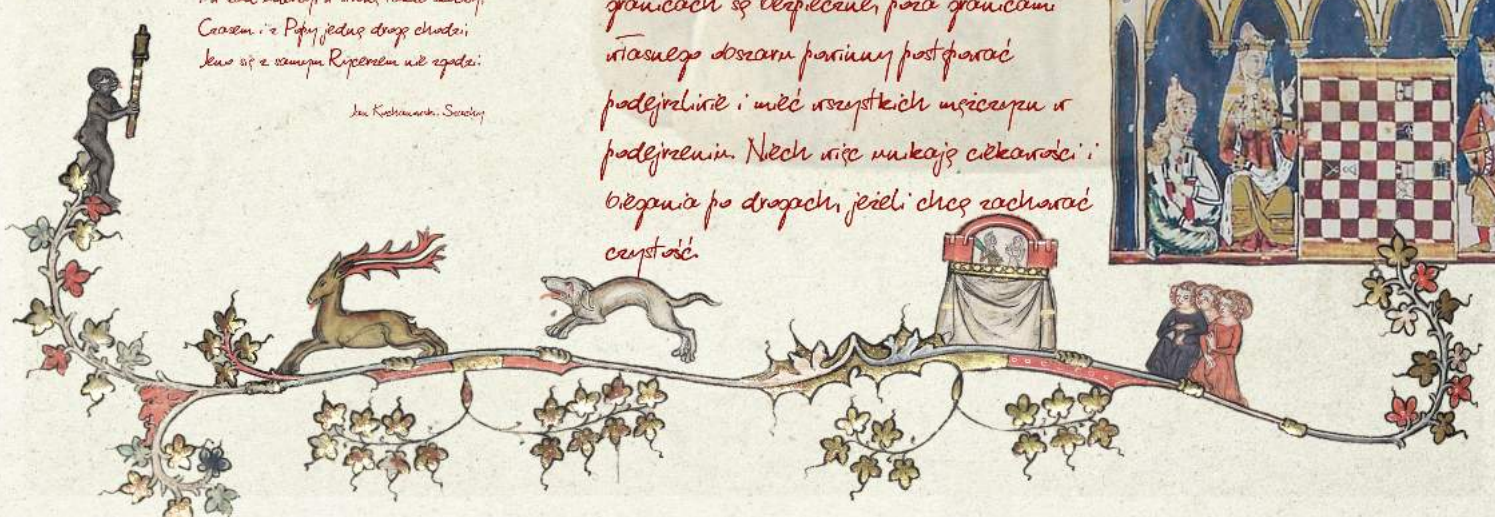 Czasem i z Popy jedną drogą chodzi
Jeno się z samym Rycerzem nie zgodzi.
Jan Kochanowski. Szachy
granicach są bezpieczne, poza granicami
własnego obszaru powinny postępować
podejrzliwie i mieć wszystkich mężczyzn w
podejrzeniu. Niech więc unikają ciekawości i
biegania po drogach, jeżeli chcą zachować
czystość.